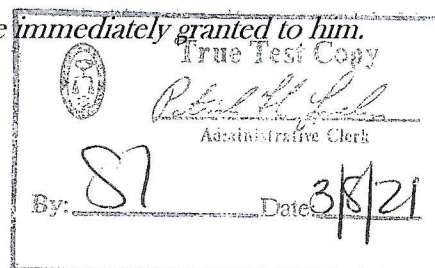 e immediately granted to him.
True Test Copy
Administrative Clerk
By: Date: 3/8/21